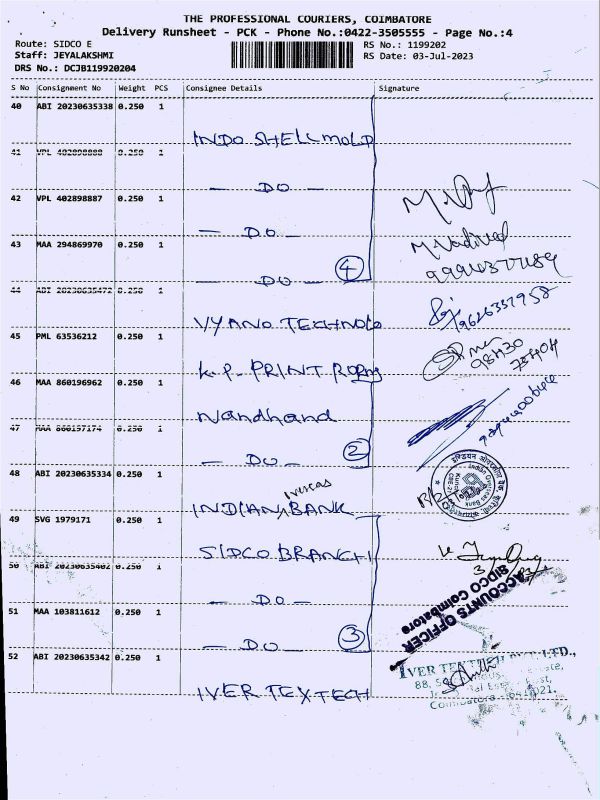 THE PROFESSIONAL COURIERS, COIMBATORE
Delivery Runsheet - PCK - Phone No.:0422-3505555 - Page No.:4
Route: SIDCO E
RS No.: 1199202
Staff: JEYALAKSHMI
RS Date: 03-Jul-2023
DRS No.: DCJB119920204
S No Consignment No Weight PCS Consignee Details Signature
40 ABI 20230635338 0.250 1
INDO SHELL MOLD
41 VPL 402898888 0.250 1
— DO —
42 VPL 402898887 0.250 1
— DO —
43 MAA 294869970 0.250 1
— DO — 4
M. Vadivel
44 ABI 20230635472 0.250 1
VYANO TECHNOLO
9626331958
45 PML 63536212 0.250 1
K. P. PRINT
98430
75404
46 MAA 860196962 0.250 1
Nandhand
47 MAA 860157174 0.250 1
— DO — 2
48 ABI 20230635334 0.250 1
INDIAN overseas BANK
Indian Overseas Bank
49 SVG 1979171 0.250 1
SIDCO BRANCH
50 ABI 20230635402 0.250 1
— DO —
51 MAA 103811612 0.250 1
— DO — 3
ACCOUNTS OFFICER
SIDCO Coimbatore
52 ABI 20230635342 0.250 1
IVER TEXTECH
IVER TEXTECH PVT. LTD.,
88,
Coimbatore - 641021.